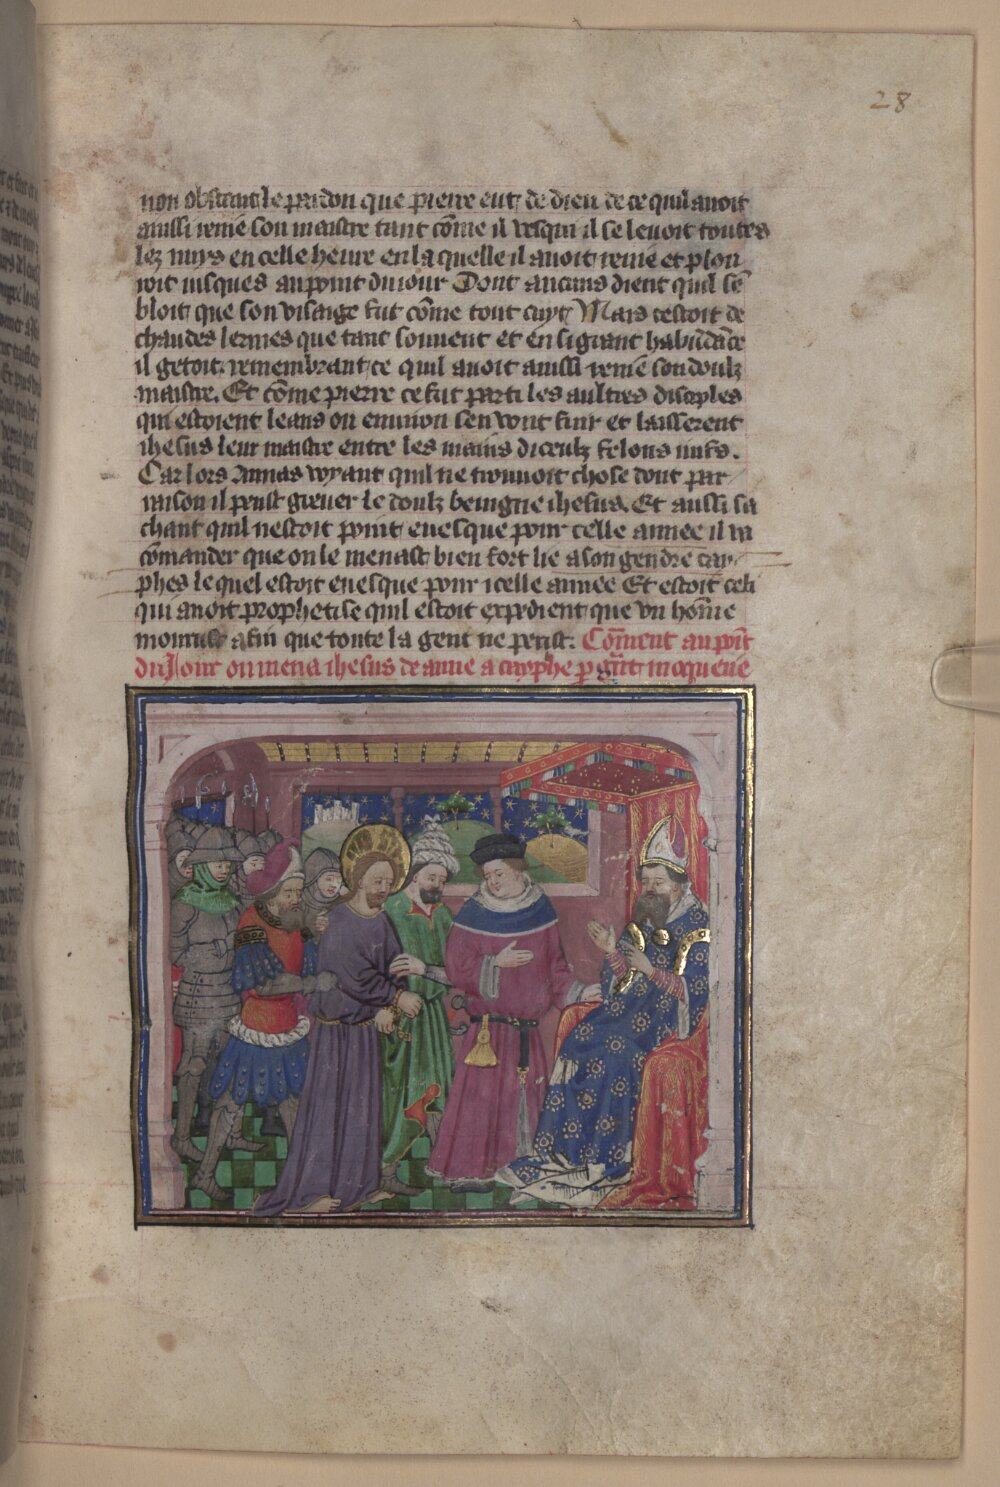 28
non obstant le pardon que pierre eut de dieu de ce quil auoit
aussi renie son maistre tant cōme il vesqui il se leuoit toutes
lez nuys en celle heure en la quelle il auoit renie et plou
roit iusques au point du iour Dont aucuns dient quil sē
bloit que son visaige fut cōme tout cuyt Mais cestoit de
chaudes lermes que tant souuent et en si grant habūdāce
il getoit remembrant ce quil auoit aussi renie son doulz
maistre. Et cōme pierre ce fut parti les aultres disciples
qui estoient leans ou enuiron sen vont fuir et laisserent
ihesus leur maistre entre les mains diceulz felons iuifs.
Car lors Annas voyant quil ne trouuoit chose dont par
raison il peust greuer le doulz beningne ihesus. Et aussi sa
chant quil nestoit point euesque pour celle annee il va
cōmander que on le menast bien fort lie a son gendre cay
phes le quel estoit euesque pour icelle annee Et estoit celi
qui auoit prophetise quil estoit expedient que vn hōme
mourust afin que toute la gent ne perist. Cōment au poīt
du Jour on mena ihesus de anne a cayphe p grāt moquerie